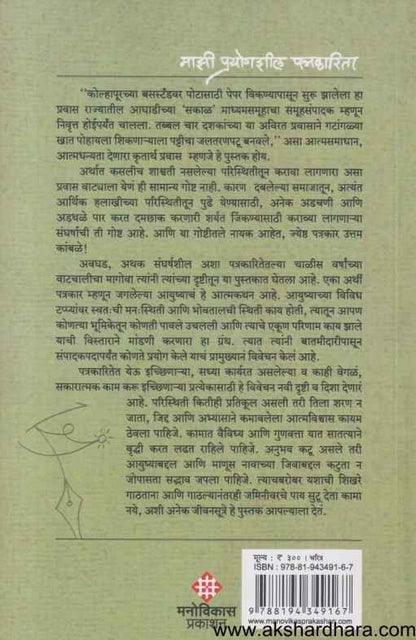 माझी प्रयोगशील पत्रकारिता
"कोल्हापूरच्या बसस्टँडवर पोटासाठी पेपर विकण्यापासून सुरू झालेला हा
प्रवास राज्यातील आघाडीच्या 'सकाळ' माध्यमसमूहाचा समूहसंपादक म्हणून
निवृत्त होईपर्यंत चालला. तब्बल चार दशकांच्या या अविरत प्रवासाने गटांगळ्या
खात पोहायला शिकणाऱ्याला पट्टीचा जलतरणपटू बनवले," असा आत्मसमाधान,
आत्मधन्यता देणारा कृतार्थ प्रवास म्हणजे हे पुस्तक होय.
अर्थात कसलीच शाश्वती नसलेल्या परिस्थितीतून करावा लागणारा असा
प्रवास वाट्याला येणं ही सामान्य गोष्ट नाही. कारण दबलेल्या समाजातून, अत्यंत
आर्थिक हलाखीच्या परिस्थितीतून पुढे येण्यासाठी, अनेक अडचणी आणि
अडथळे पार करत दमछाक करणारी शर्यत जिंकण्यासाठी कराव्या लागणाऱ्या
संघर्षाची ती गोष्ट आहे. आणि या गोष्टीतले नायक आहेत, ज्येष्ठ पत्रकार उत्तम
कांबळे!
अवघड, अथक संघर्षशील अशा पत्रकारितेतल्या चाळीस वर्षांच्या
वाटचालीचा मागोवा त्यांनी त्यांच्या दृष्टीतून या पुस्तकात घेतला आहे. एका अर्थी
पत्रकार म्हणून जगलेल्या आयुष्याचं हे आत्मकथन आहे. आयुष्याच्या विविध
टप्प्यांवर स्वतःची मनःस्थिती आणि भोवतालची स्थिती काय होती, त्यातून आपण
कोणत्या भूमिकेतून कोणती पावले उचलली आणि त्याचे एकूण परिणाम काय झाले
याची विस्ताराने मांडणी करणारा हा ग्रंथ. त्यात त्यांनी बातमीदारीपासून
संपादकपदापर्यंत कोणते प्रयोग केले याचं प्रामुख्यानं विवेचन केलं आहे.
पत्रकारितेत येऊ इच्छिणाऱ्या, सध्या कार्यरत असलेल्या व काही वेगळं,
सकारात्मक काम करू इच्छिणाऱ्या प्रत्येकासाठी हे विवेचन नवी दृष्टी व दिशा देणारं
आहे. परिस्थिती कितीही प्रतिकूल असली तरी तिला शरण न
जाता, जिद्द आणि अभ्यासाने कमावलेला आत्मविश्वास कायम
ठेवला पाहिजे. कामात वैविध्य आणि गुणवत्ता यात सातत्याने
वृद्धी करत लढत राहिले पाहिजे. अनुभव कटू असले तरी
आयुष्याबद्दल आणि माणूस नावाच्या जिवाबद्दल कटुता न
जोपासता सद्भाव जपला पाहिजे. त्याचबरोबर यशाची शिखरे
गाठताना आणि गाठल्यानंतरही जमिनीवरचे पाय सुटू देता कामा
नये, अशी अनेक जीवनसूत्रे हे पुस्तक आपल्याला देतं.
मनोविकास
प्रकाशन
मूल्य : ₹ ३०० : चरित्र
ISBN : 978-81-943491-6-7
9 788194 349167
www.manovikasprakashan.com
www.akshardhara.com